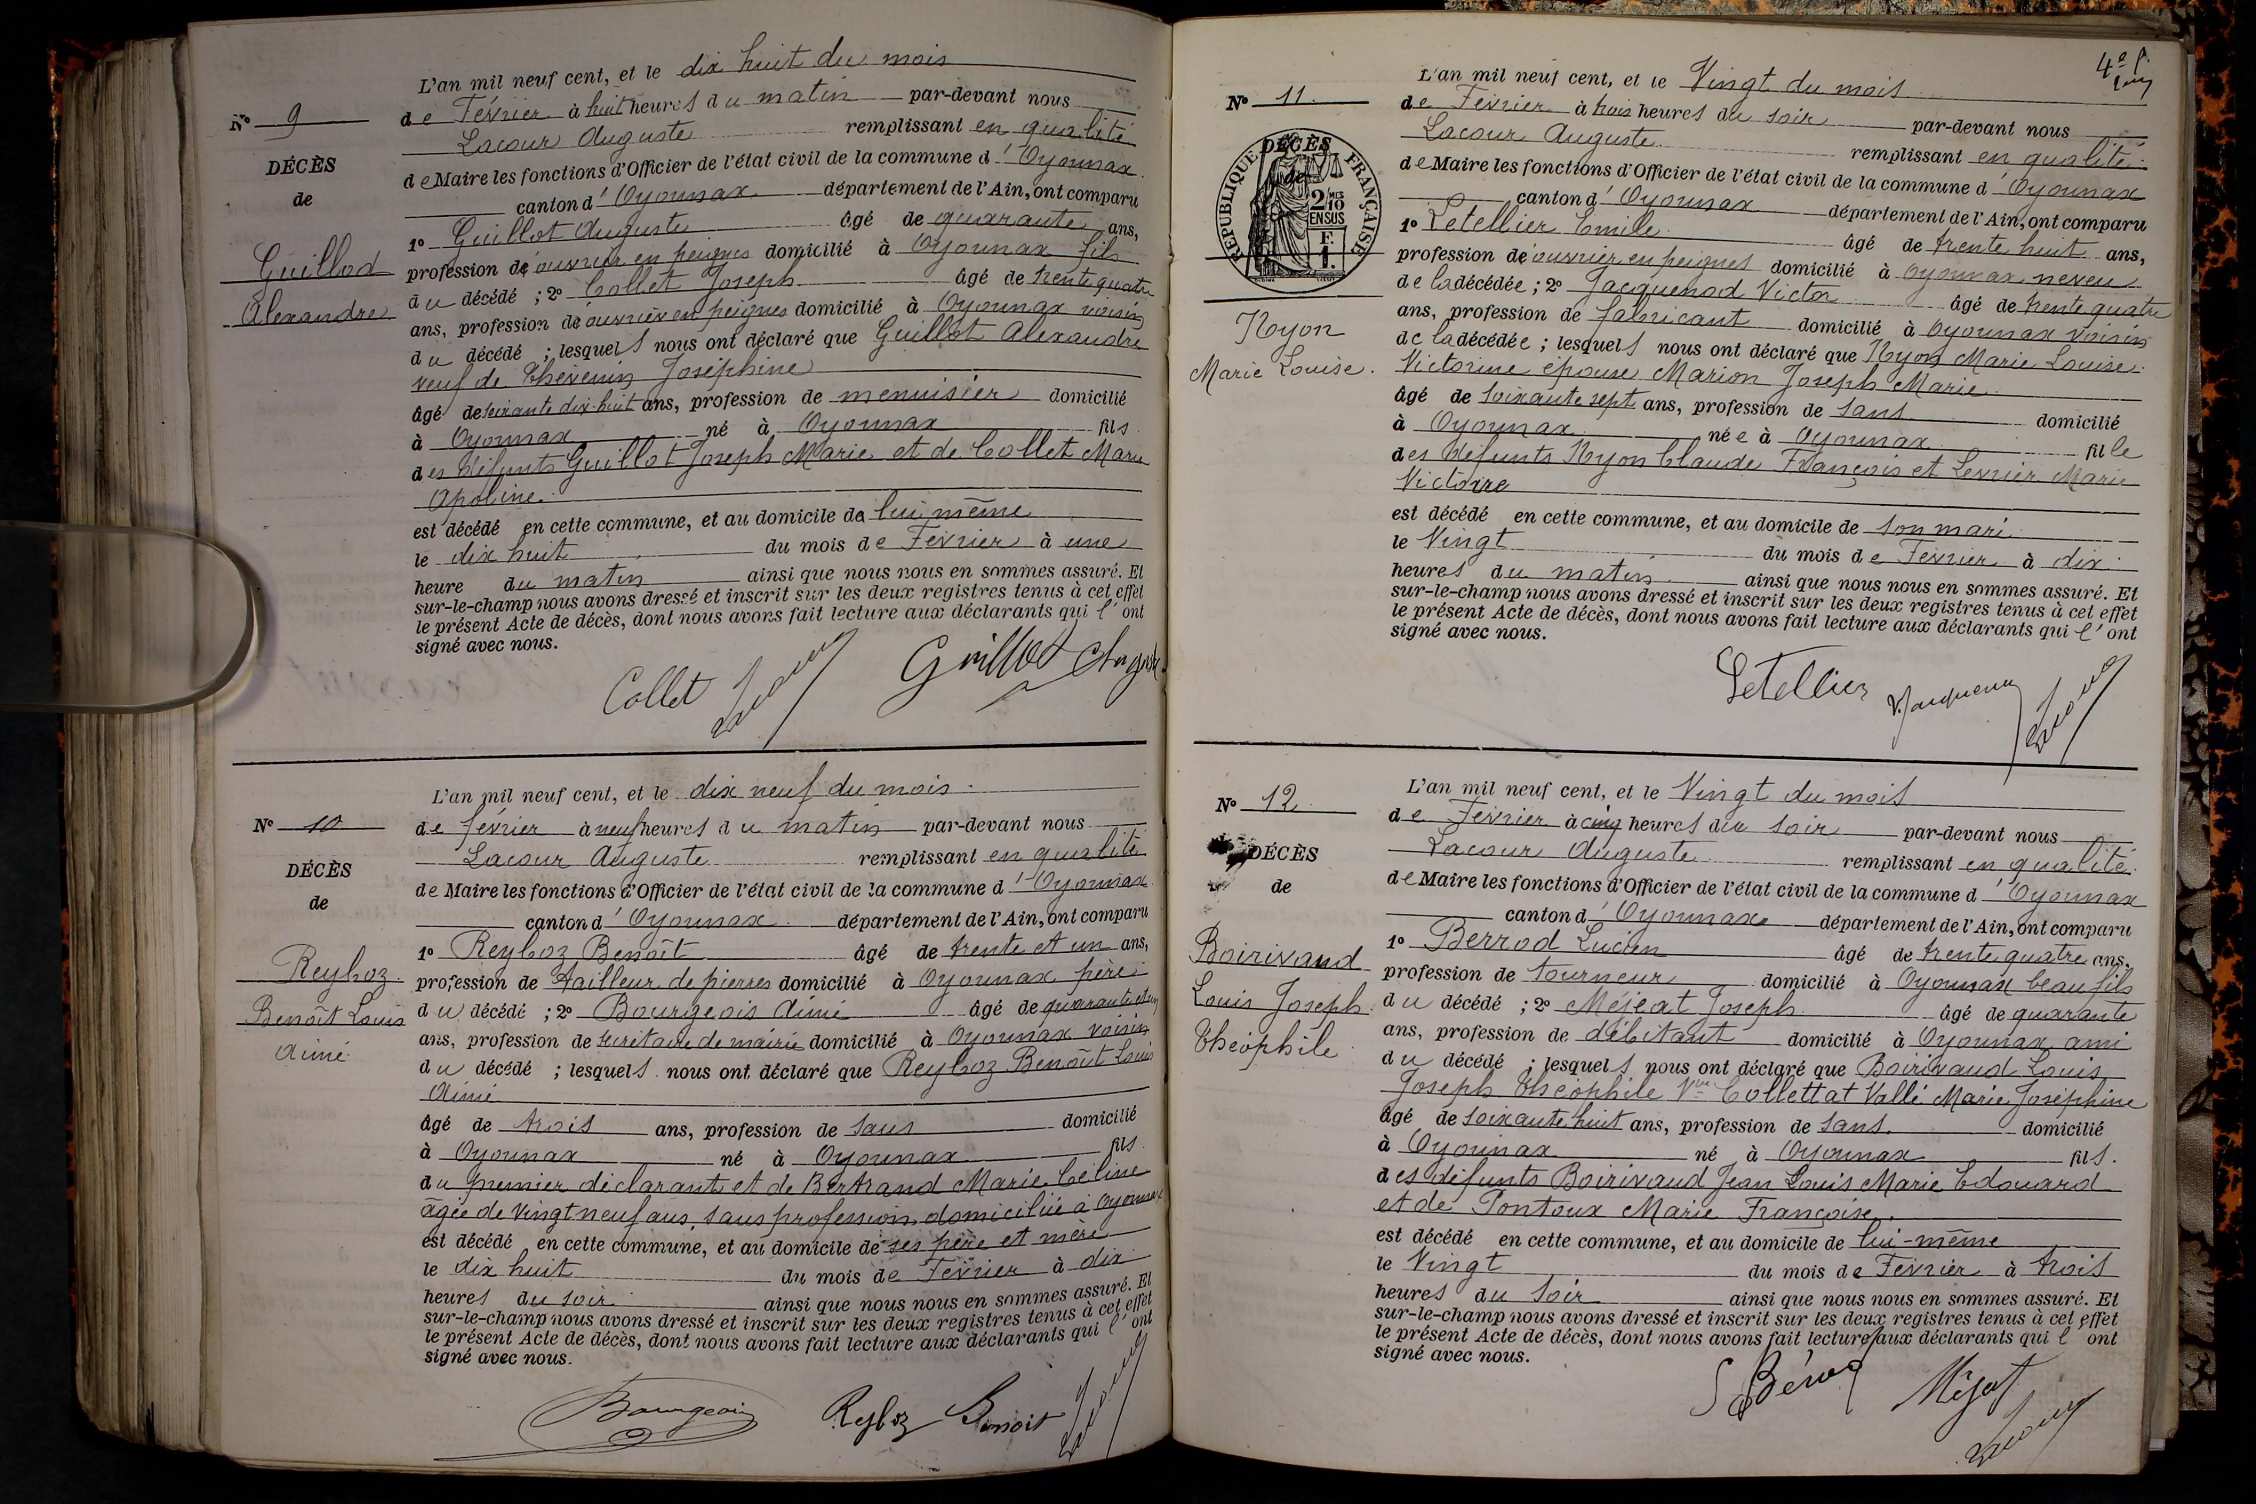 L'an mil neuf cent, et le dix huit du mois
N° 9
de Février à huit heures du matin par-devant nous
Lacour Auguste remplissant en qualité
DÉCÈS
de Maire les fonctions d'Officier de l'état civil de la commune d'Oyonnax
de
canton d'Oyonnax département de l'Ain, ont comparu
1° Guillot Auguste âgé de quarante ans,
Guillod
profession de ouvrier en peignes domicilié à Oyonnax fils
Alexandre
du décédé ; 2° Collet Joseph âgé de trente quatre
ans, profession de ouvrier en peignes domicilié à Oyonnax voisin
du décédé ; lesquels nous ont déclaré que Guillot Alexandre
veuf de Thévenin Joséphine
âgé de soixante dix-huit ans, profession de menuisier domicilié
à Oyonnax né à Oyonnax fils
des défunts Guillot Joseph Marie et de Collet Marie
Apoline
est décédé en cette commune, et au domicile de lui même
le dix huit du mois de Février à une
heure du matin ainsi que nous nous en sommes assuré. Et
sur-le-champ nous avons dressé et inscrit sur les deux registres tenus à cet effet
le présent Acte de décès, dont nous avons fait lecture aux déclarants qui l'ont
signé avec nous.
Collet Lacour Guillot Auguste
L'an mil neuf cent, et le dix neuf du mois
N° 10
de février à neuf heures du matin par-devant nous
Lacour Auguste remplissant en qualité
DÉCÈS
de Maire les fonctions d'Officier de l'état civil de la commune d'Oyonnax
de
canton d'Oyonnax département de l'Ain, ont comparu
1° Reyboz Benoît âgé de trente et un ans,
Reyboz
profession de tailleur de pierres domicilié à Oyonnax père
Benoît Louis
du décédé ; 2° Bourgeois Aimé âgé de quarante et un
Aimé
ans, profession de secrétaire de mairie domicilié à Oyonnax voisin
du décédé ; lesquels nous ont déclaré que Reyboz Benoît Louis
Aimé
âgé de trois ans, profession de sans domicilié
à Oyonnax né à Oyonnax fils
du premier déclarant et de Bertrand Marie Céline
âgée de vingt neuf ans, sans profession domiciliée à Oyonnax
est décédé en cette commune, et au domicile de ses père et mère
le dix huit du mois de Février à dix
heures du soir ainsi que nous nous en sommes assuré. Et
sur-le-champ nous avons dressé et inscrit sur les deux registres tenus à cet effet
le présent Acte de décès, dont nous avons fait lecture aux déclarants qui l'ont
signé avec nous.
Bourgeois Reyboz Benoit Lacour
4e f.
L'an mil neuf cent, et le Vingt du mois
N° 11.
de Février à trois heures du soir par-devant nous
Lacour Auguste remplissant en qualité
DÉCÈS
de
RÉPUBLIQUE FRANÇAISE
2/10 MES
EN SUS
F.
1.
de Maire les fonctions d'Officier de l'état civil de la commune d'Oyonnax
canton d'Oyonnax département de l'Ain, ont comparu
1° Letellier Emile âgé de trente huit ans,
profession de ouvrier en peignes domicilié à Oyonnax neveu
de la décédée ; 2° Jacquenod Victor âgé de trente quatre
Nyon
ans, profession de fabricant domicilié à Oyonnax voisin
Marie Louise.
de la décédée ; lesquels nous ont déclaré que Nyon Marie Louise
Victorine épouse Marion Joseph Marie
âgé de soixante sept ans, profession de sans domicilié
à Oyonnax née à Oyonnax fille
des défunts Nyon Claude François et Levrier Marie
Victoire
est décédé en cette commune, et au domicile de son mari
le Vingt du mois de Février à dix
heures du matin ainsi que nous nous en sommes assuré. Et
sur-le-champ nous avons dressé et inscrit sur les deux registres tenus à cet effet
le présent Acte de décès, dont nous avons fait lecture aux déclarants qui l'ont
signé avec nous.
Letellier V Jacquenod Lacour
L'an mil neuf cent, et le Vingt du mois
N° 12
de Février à cinq heures du soir par-devant nous
Lacour Auguste remplissant en qualité
DÉCÈS
de Maire les fonctions d'Officier de l'état civil de la commune d'Oyonnax
de
canton d'Oyonnax département de l'Ain, ont comparu
1° Berrod Lucien âgé de trente quatre ans,
Boirivaud
profession de tourneur domicilié à Oyonnax beau fils
Louis Joseph
du décédé ; 2° Méjeat Joseph âgé de quarante
Théophile
ans, profession de débitant domicilié à Oyonnax ami
du décédé ; lesquels nous ont déclaré que Boirivaud Louis
Joseph Théophile Collettat Valli Marie Joséphine
âgé de soixante huit ans, profession de sans domicilié
à Oyonnax né à Oyonnax fils.
des défunts Boirivaud Jean Louis Marie Edouard
et de Pontoux Marie Françoise
est décédé en cette commune, et au domicile de lui-même
le Vingt du mois de Février à trois
heures du soir ainsi que nous nous en sommes assuré. Et
sur-le-champ nous avons dressé et inscrit sur les deux registres tenus à cet effet
le présent Acte de décès, dont nous avons fait lecture aux déclarants qui l'ont
signé avec nous.
Méjat Lacour